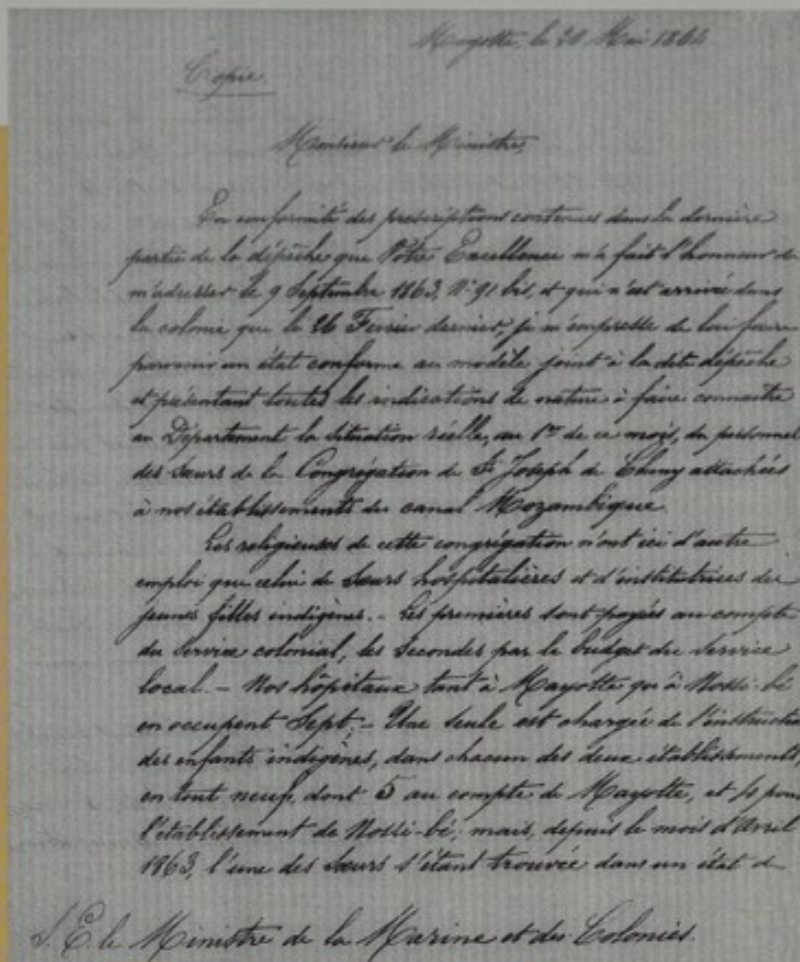 Mayotte, le 20 Mai 1864
Copie
Monsieur le Ministre,
En conformité des prescriptions contenues dans la dernière
partie de la dépêche que Votre Excellence m'a fait l'honneur de
m'adresser le 9 Septembre 1863, N° 91 bis, et qui n'est arrivée dans
la colonie que le 26 Fevrier dernier, je m'empresse de lui faire
parvenir un état conforme au modèle joint à la dite dépêche
et présentant toutes les indications de nature à faire connaitre
au Département la situation réelle, au 1er de ce mois, du personnel
des Sœurs de la Congrégation de St Joseph de Cluny attachées
à nos établissements du canal Mozambique.
Les religieuses de cette congrégation n'ont ici d'autre
emploi que celui de Sœurs hospitalières et d'institutrices des
jeunes filles indigènes. - Les premières sont payées au compte
du Service colonial, les secondes par le budget du Service
local. - Nos hôpitaux tant à Mayotte qu'à Nossi-bé
en occupent Sept; - Une seule est chargée de l'instruction
des enfants indigènes, dans chacun des deux établissements,
en tout neuf, dont 5 au compte de Mayotte, et 4 pour
l'établissement de Nossi-bé; mais, depuis le mois d'Avril
1863, l'une des Sœurs s'étant trouvée dans un état de
S. E. le Ministre de la Marine et des Colonies.